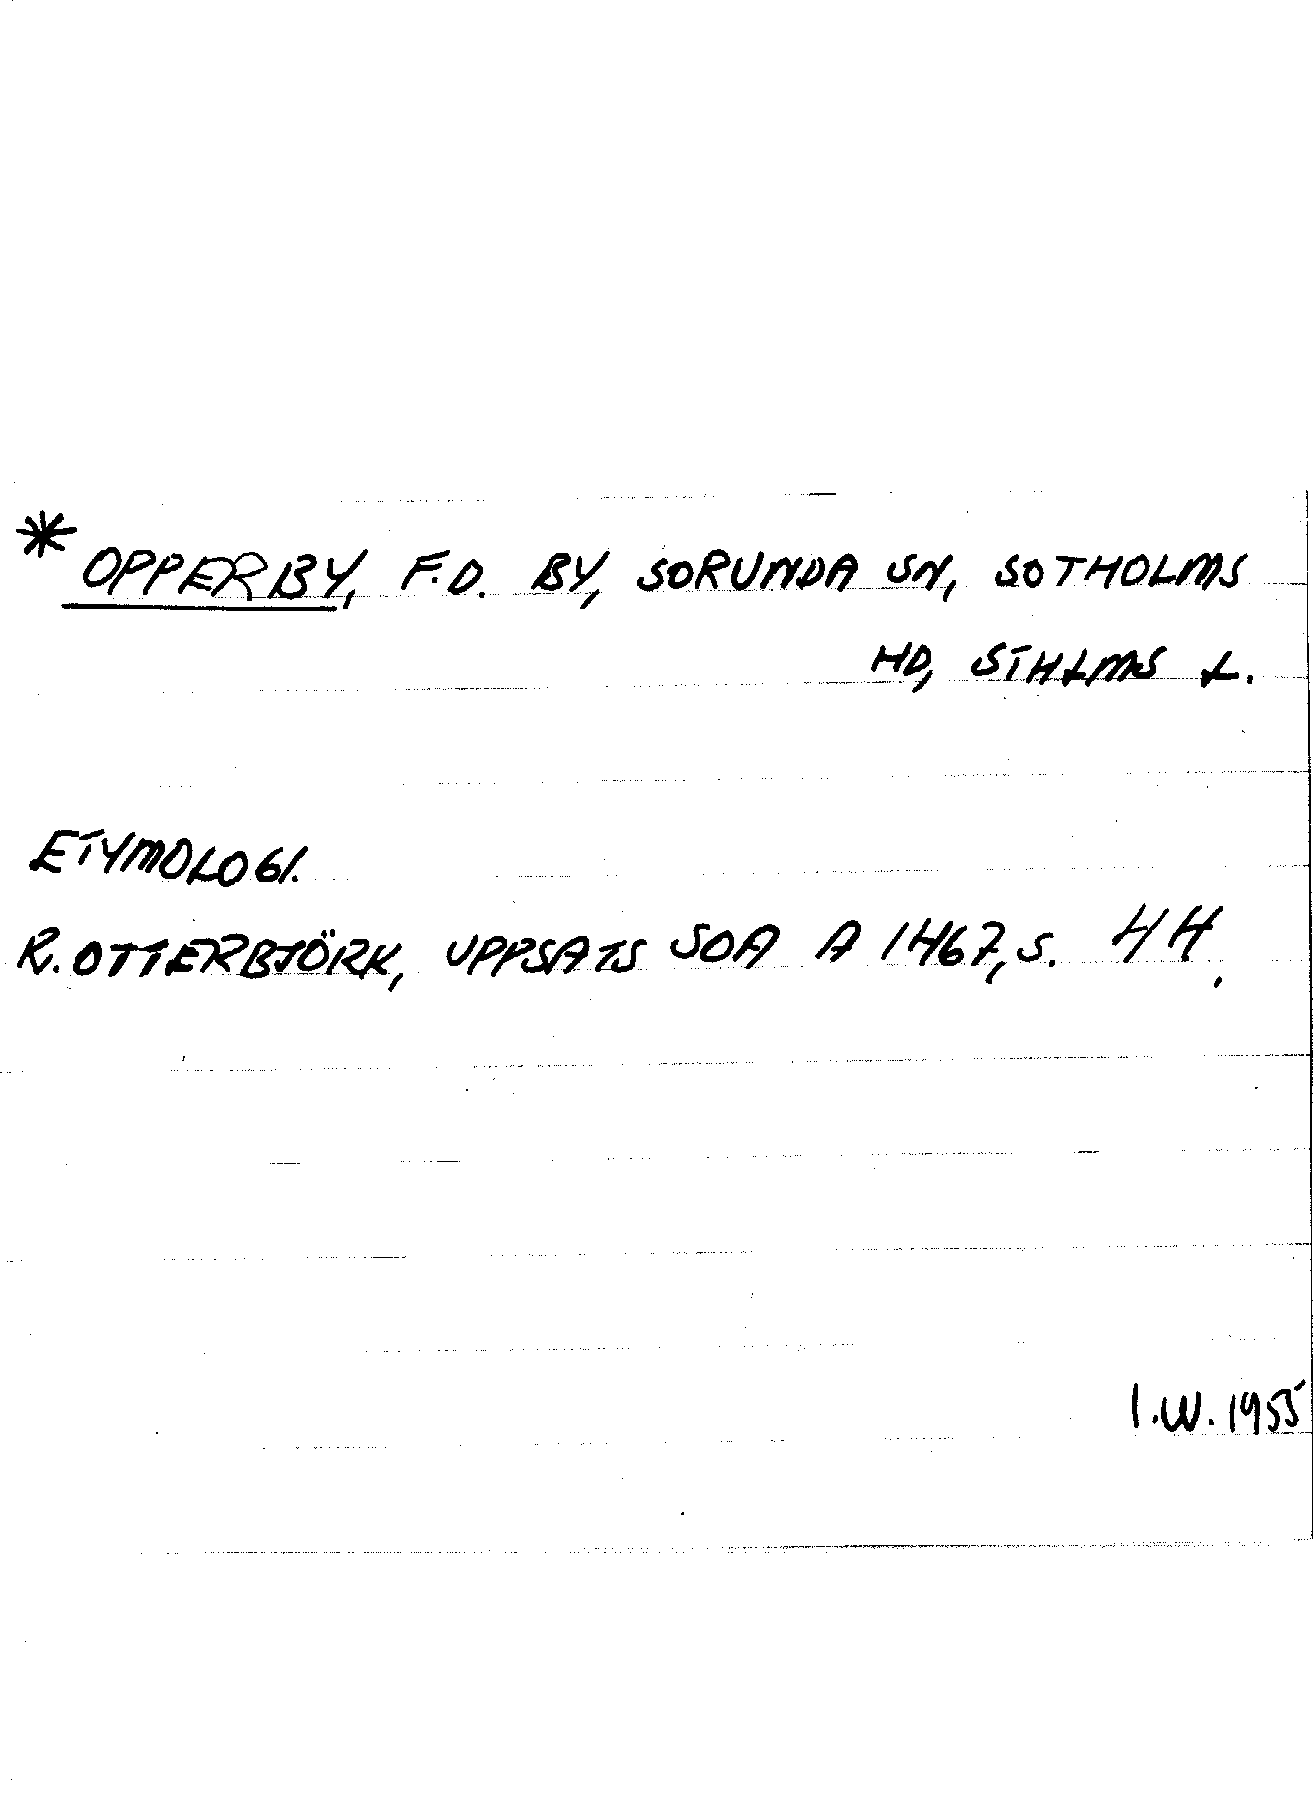 * OPPERBY, F.D. BY, SORUNDA SN, SOTHOLMS
HD, STHLMS L.
ETYMOLOGI.
R. OTTERBJÖRK, UPPSATS SOA A 1467, S. 44.
I.W. 1955